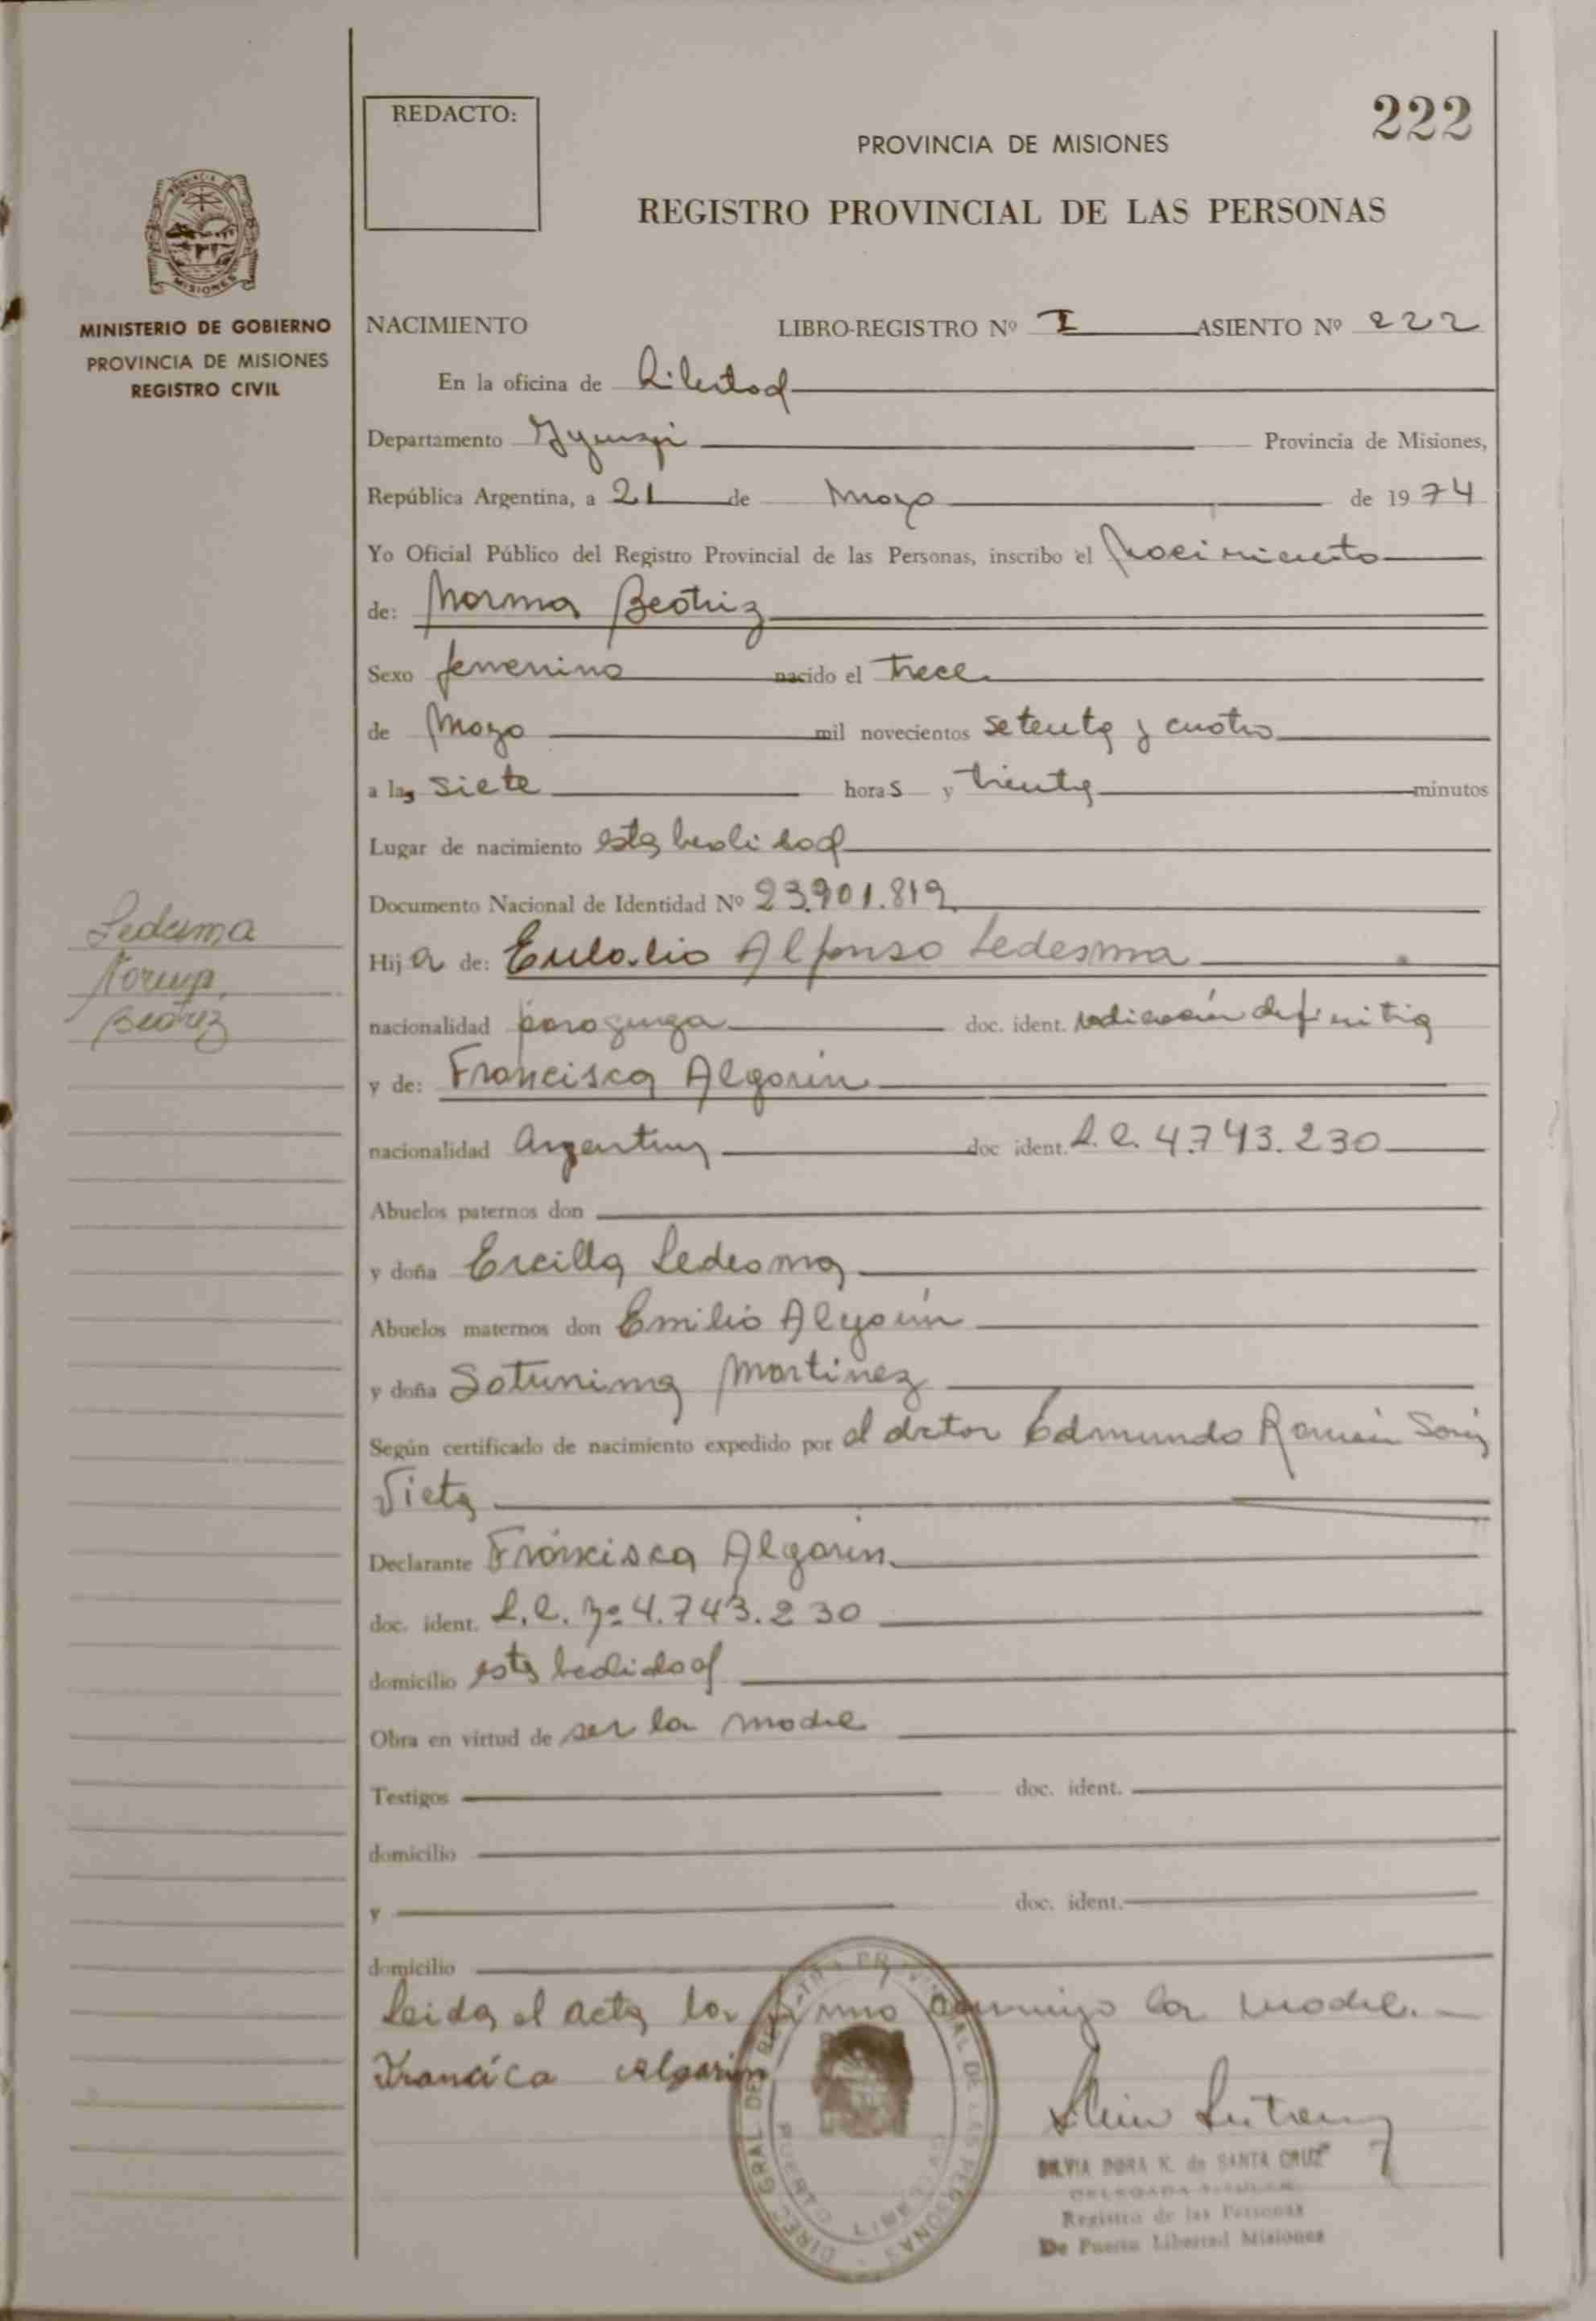 REDACTO:
222
PROVINCIA DE MISIONES
REGISTRO PROVINCIAL DE LAS PERSONAS
PROVINCIA DE
MISIONES
MINISTERIO DE GOBIERNO
PROVINCIA DE MISIONES
REGISTRO CIVIL
NACIMIENTO LIBRO-REGISTRO Nº I ASIENTO Nº 222
En la oficina de Libertad
Departamento Iguazú Provincia de Misiones,
República Argentina, a 21 de Mayo de 1974
Yo Oficial Público del Registro Provincial de las Personas, inscribo el Nacimiento
de: Norma Beatriz
Sexo femenino nacido el trece
de Mayo mil novecientos setenta y cuatro
a las siete horas y treinta minutos
Lugar de nacimiento esta localidad
Documento Nacional de Identidad Nº 23.901.819
Ledesma
Norma
Beatriz
Hija de: Eulalio Alfonso Ledesma
nacionalidad paraguaya doc. ident. radicación definitiva
y de: Francisca Algarín
nacionalidad Argentina doc ident. L.C. 4.743.230
Abuelos paternos don
y doña Ercilla Ledesma
Abuelos maternos don Emilio Algarín
y doña Saturnina Martínez
Según certificado de nacimiento expedido por el doctor Edmundo Ramón
Declarante Francisca Algarín
doc. ident. L.C. Nº 4.743.230
domicilio esta localidad
Obra en virtud de ser la madre
Testigos doc. ident.
domicilio
y doc. ident.
domicilio
Leida el acta la firmó conmigo la madre.
Francica Algarin
DIREC. GRAL. DEL REGISTRO PROVINCIAL DE LAS PERSONAS
PUERTO LIBERTAD
SILVIA DORA K. de SANTA CRUZ
DELEGADA TITULAR
Registro de las Personas
De Puerto Libertad Misiones